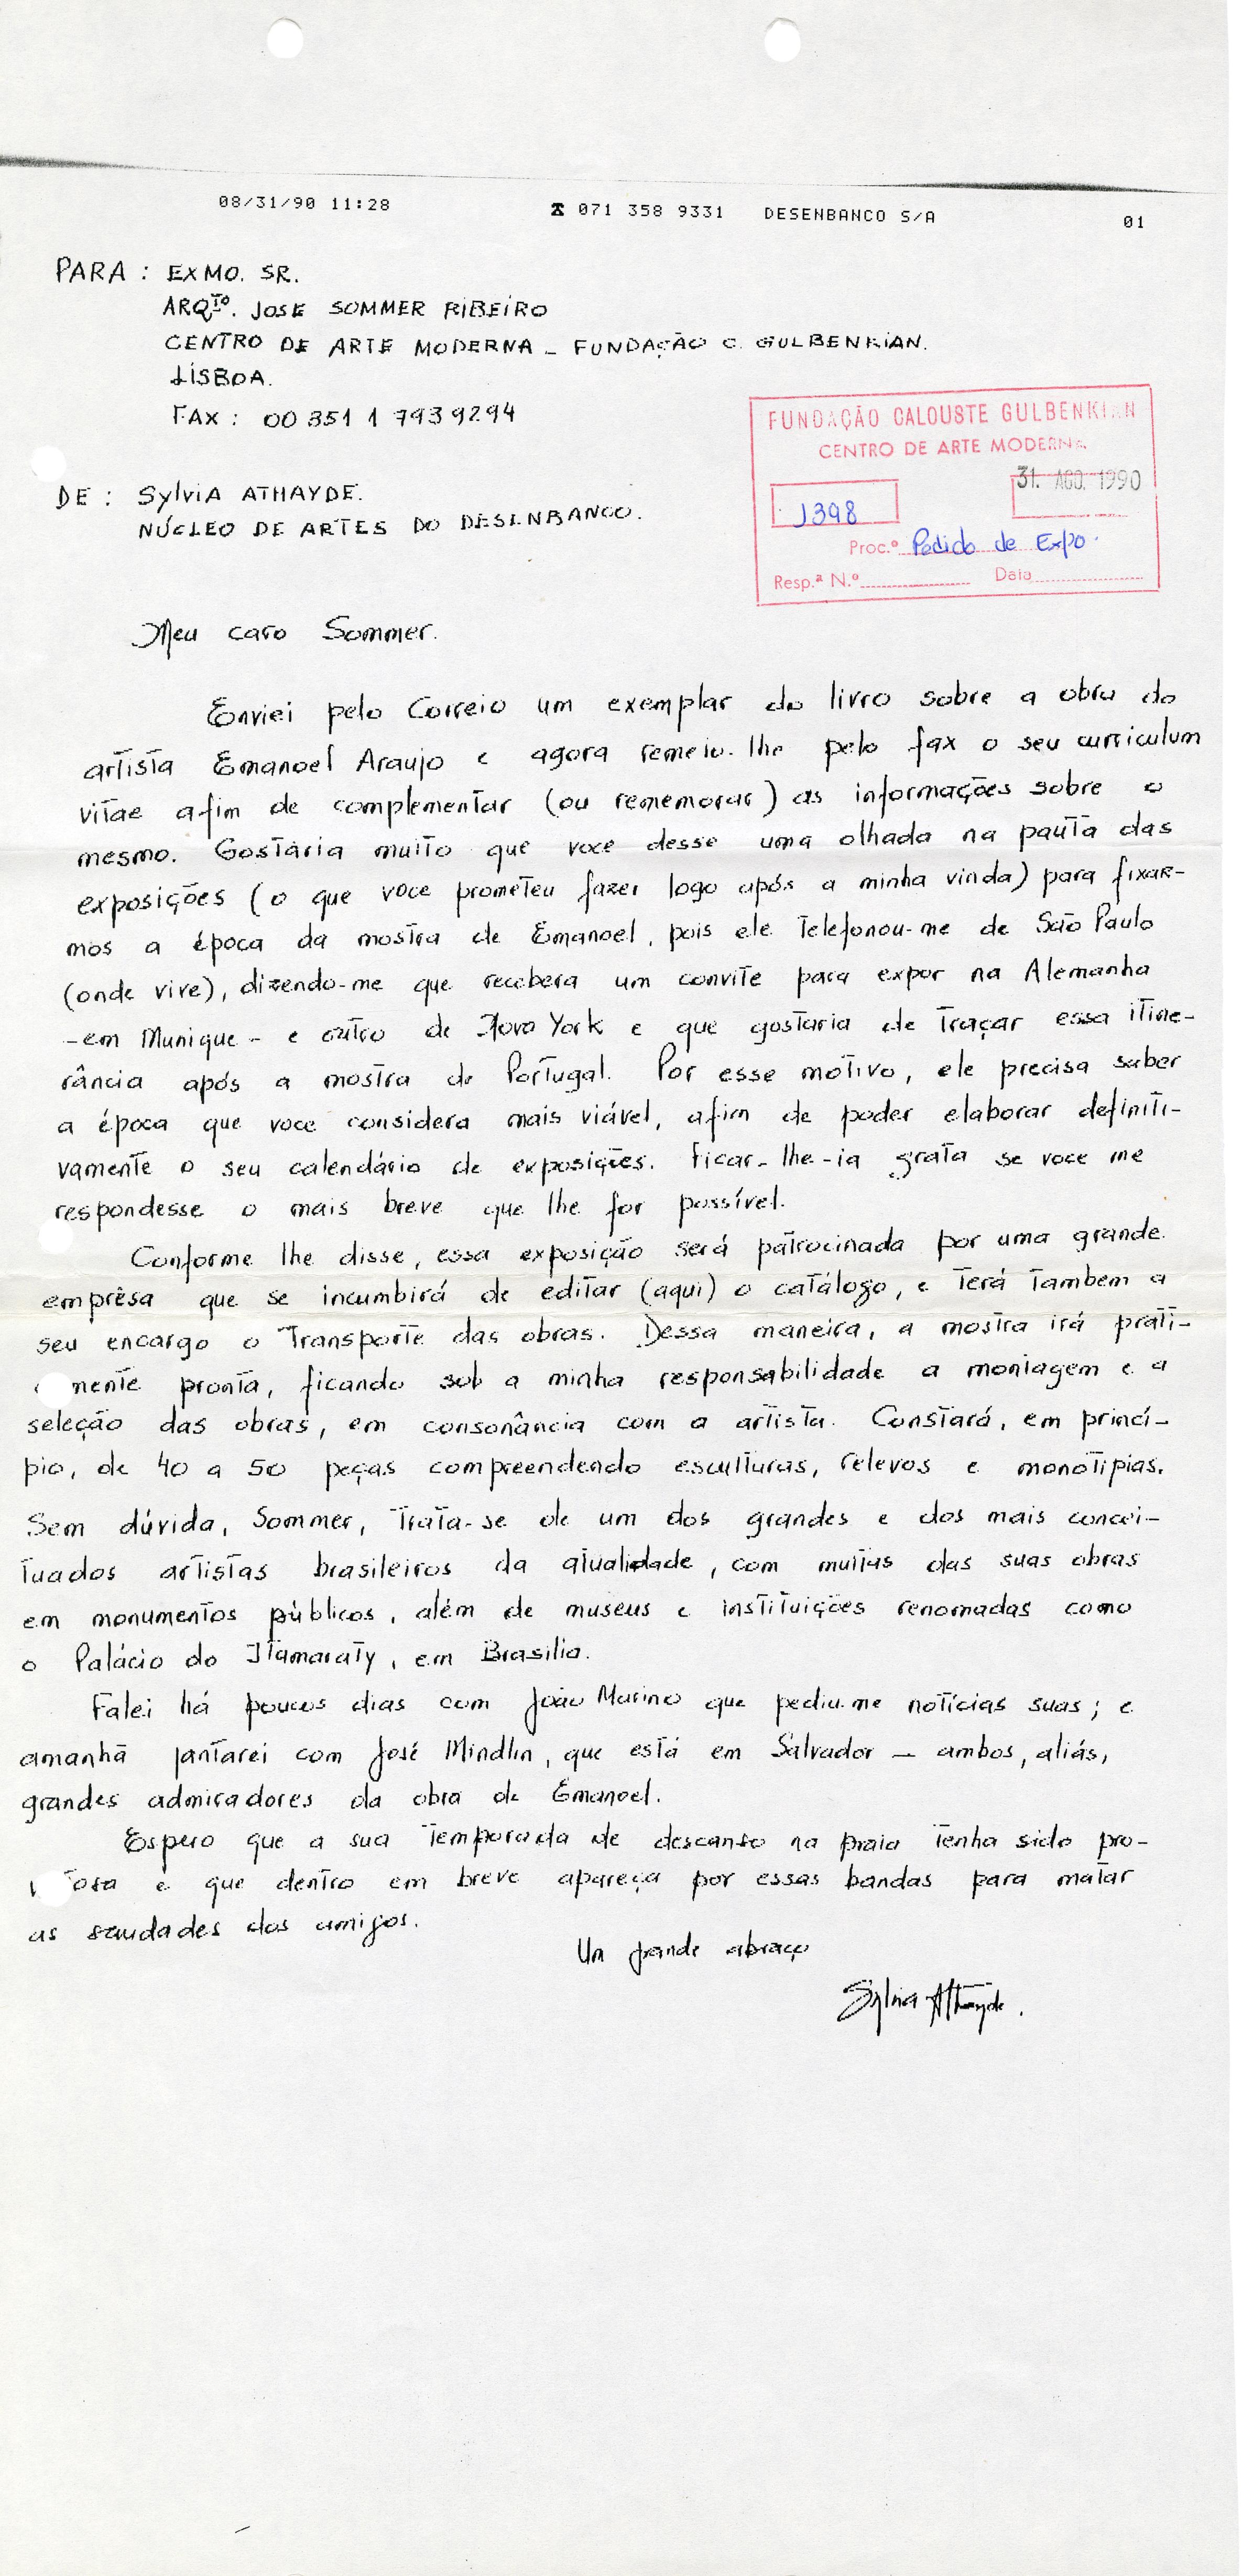 08/31/90 11:28 ☎ 071 358 9331 DESENBANCO S/A 01
PARA : EXMO. SR.
ARQTO. JOSE SOMMER RIBEIRO
CENTRO DE ARTE MODERNA - FUNDAÇÃO C. GULBENKIAN.
LISBOA.
FAX : 00 351 1 7939294
FUNDAÇÃO CALOUSTE GULBENKIAN
CENTRO DE ARTE MODERNA
31. AGO. 1990
1398
Proc.º Pedido de Expo.
Resp.ª N.º Data
DE : Sylvia ATHAYDE.
NÚCLEO DE ARTES DO DESENBANCO.
Meu caro Sommer.
Enviei pelo Correio um exemplar do livro sobre a obra do
artista Emanoel Araujo e agora remeto-lhe pelo fax o seu curriculum
vitae afim de complementar (ou rememorar) as informações sobre o
mesmo. Gostaria muito que voce desse uma olhada na pauta das
exposições (o que voce prometeu fazer logo após a minha vinda) para fixar-
mos a época da mostra de Emanoel, pois ele telefonou-me de São Paulo
(onde vive), dizendo-me que recebera um convite para expor na Alemanha
-em Munique- e outro de Nova York e que gostaria de traçar essa itine-
rância após a mostra de Portugal. Por esse motivo, ele precisa saber
a época que voce considera mais viável, afim de poder elaborar definiti-
vamente o seu calendário de exposições. Ficar-lhe-ia grata se voce me
respondesse o mais breve que lhe for possível.
Conforme lhe disse, essa exposição será patrocinada por uma grande
emprêsa que se incumbirá de editar (aqui) o catálogo, e terá tambem a
seu encargo o transporte das obras. Dessa maneira, a mostra irá prati-
mente pronta, ficando sob a minha responsabilidade a montagem e a
seleção das obras, em consonância com a artista. Constará, em princí-
pio, de 40 a 50 peças compreendendo esculturas, relevos e monotipias.
Sem dúvida, Sommer, trata-se de um dos grandes e dos mais concei-
tuados artistas brasileiros da atualidade, com muitas das suas obras
em monumentos públicos, além de museus e instituições renomadas como
o Palácio do Itamaraty, em Brasilia.
Falei há poucos dias com João Marino que pediu-me notícias suas; e
amanhã jantarei com José Mindlin, que está em Salvador - ambos, aliás,
grandes admiradores da obra de Emanoel.
Espero que a sua temporada de descanso na praia tenha sido pro-
tosa e que dentro em breve apareça por essas bandas para matar
as saudades dos amigos.
Um grande abraço
Sylvia Athayde.